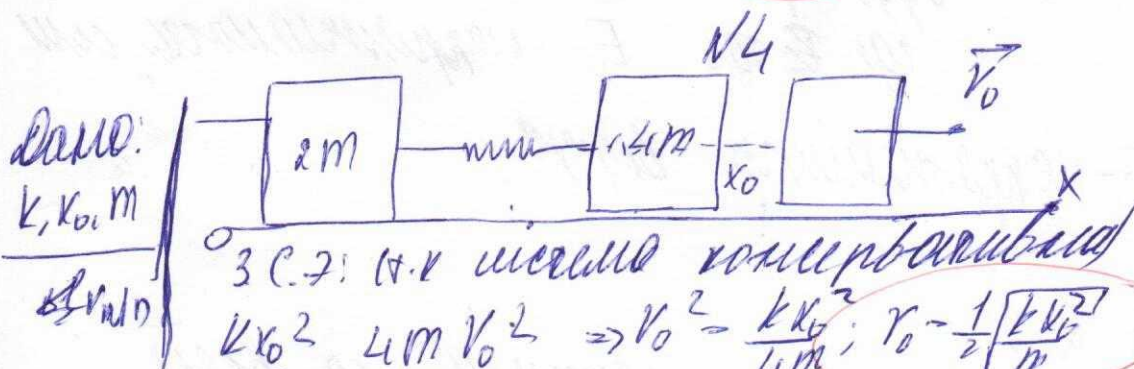 N4
V₀
Дано:
k, x₀, m
2m 4m x₀ x
O
З С.Э: (т.к система консервативна)
kx₀² 4m V₀² => V₀² = kx₀²/4m ; V₀ = 1/2 √(kx₀²/m)